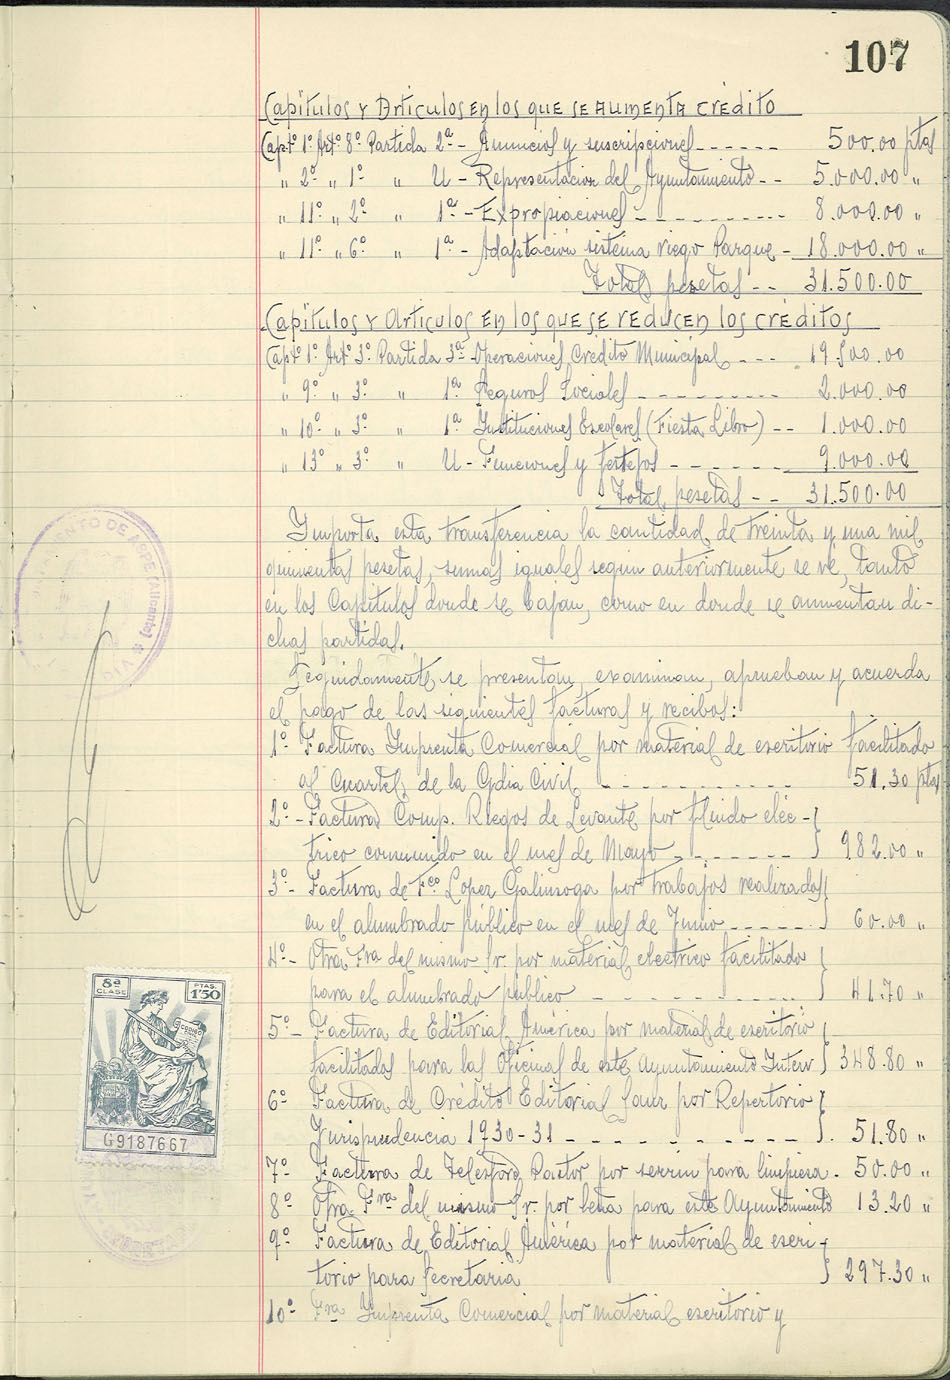 107
Capítulos y Artículos en los que se aumenta crédito
Captº 1º Artº 8º Partida 2ª - Anuncios y suscripciones ------ 500.00 ptas
" 2º " 1º " U - Representacion del Ayuntamiento -- 5.000.00 "
" 11º " 2º " 1ª - Expropiaciones ---------- 8.000.00 "
" 11º " 6º " 1ª - Adaptación sistema riego Parque - 18.000.00 "
Total pesetas -- 31.500.00
Capítulos y Artículos en los que se reducen los créditos
Captº 1º Artº 3º Partida 3ª - Operaciones Crédito Municipal --- 19.500.00
" 9º " 3º " 1ª Seguros Sociales --------- 2.000.00
" 10º " 3º " 1ª Instituciones Escolares (Fiesta Libro) -- 1.000.00
" 13º " 3º " U - Funciones y festejos ------ 9.000.00
Total pesetas -- 31.500.00
Importa esta transferencia la cantidad de treinta y una mil
quinientas pesetas, sumas iguales segun anteriormente se ve, tanto
en los Capitulos donde se bajan, como en donde se aumentan di-
chas partidas.
Seguidamente se presentan, examinan, aprueban y acuerda
el pago de las siguientes facturas y recibos:
1º Factura Imprenta Comercial por material de escritorio facilitado
al Cuartel de la Gdia Civil ----------- 51.30 ptas
2º - Factura Comp. Riegos de Levante por flúido eléc-
trico consumido en el mes de Mayo ------- 982.00 "
3º - Factura de Fcº Lopez Galinsoga por trabajos realizados
en el alumbrado público en el mes de Junio ----- 60.00 "
4º - Otra Fra del mismo Sr. por material electrico facilitado
para el alumbrado público ----------- 41.70 "
5º - Factura de Editorial América por material de escritorio
facilitados para las Oficinas de este Ayuntamiento Interv 348.80 "
6º Factura de Crédito Editorial por Repertorio
Jurisprudencia 1930-31 ---------- 51.80 "
7º Factura de Telesforo Pastor por serrin para limpiesa - 50.00 "
8º Otra Fra del mismo Sr. por leña para este Ayuntamiento 13.20 "
9º Factura de Editorial América por material de escri-
torio para Secretaria 297.30 "
10º Fra Imprenta Comercial por material escritorio y
AYUNTAMIENTO DE ASPE (Alicante)
8ª CLASE
PTAS. 1'50
G9187667